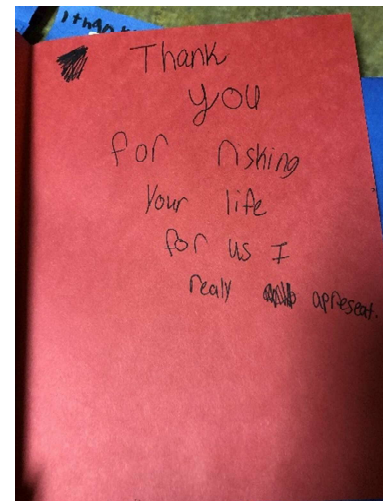 I than
Thank
you
for risking
your life
for us I
realy apreseat.